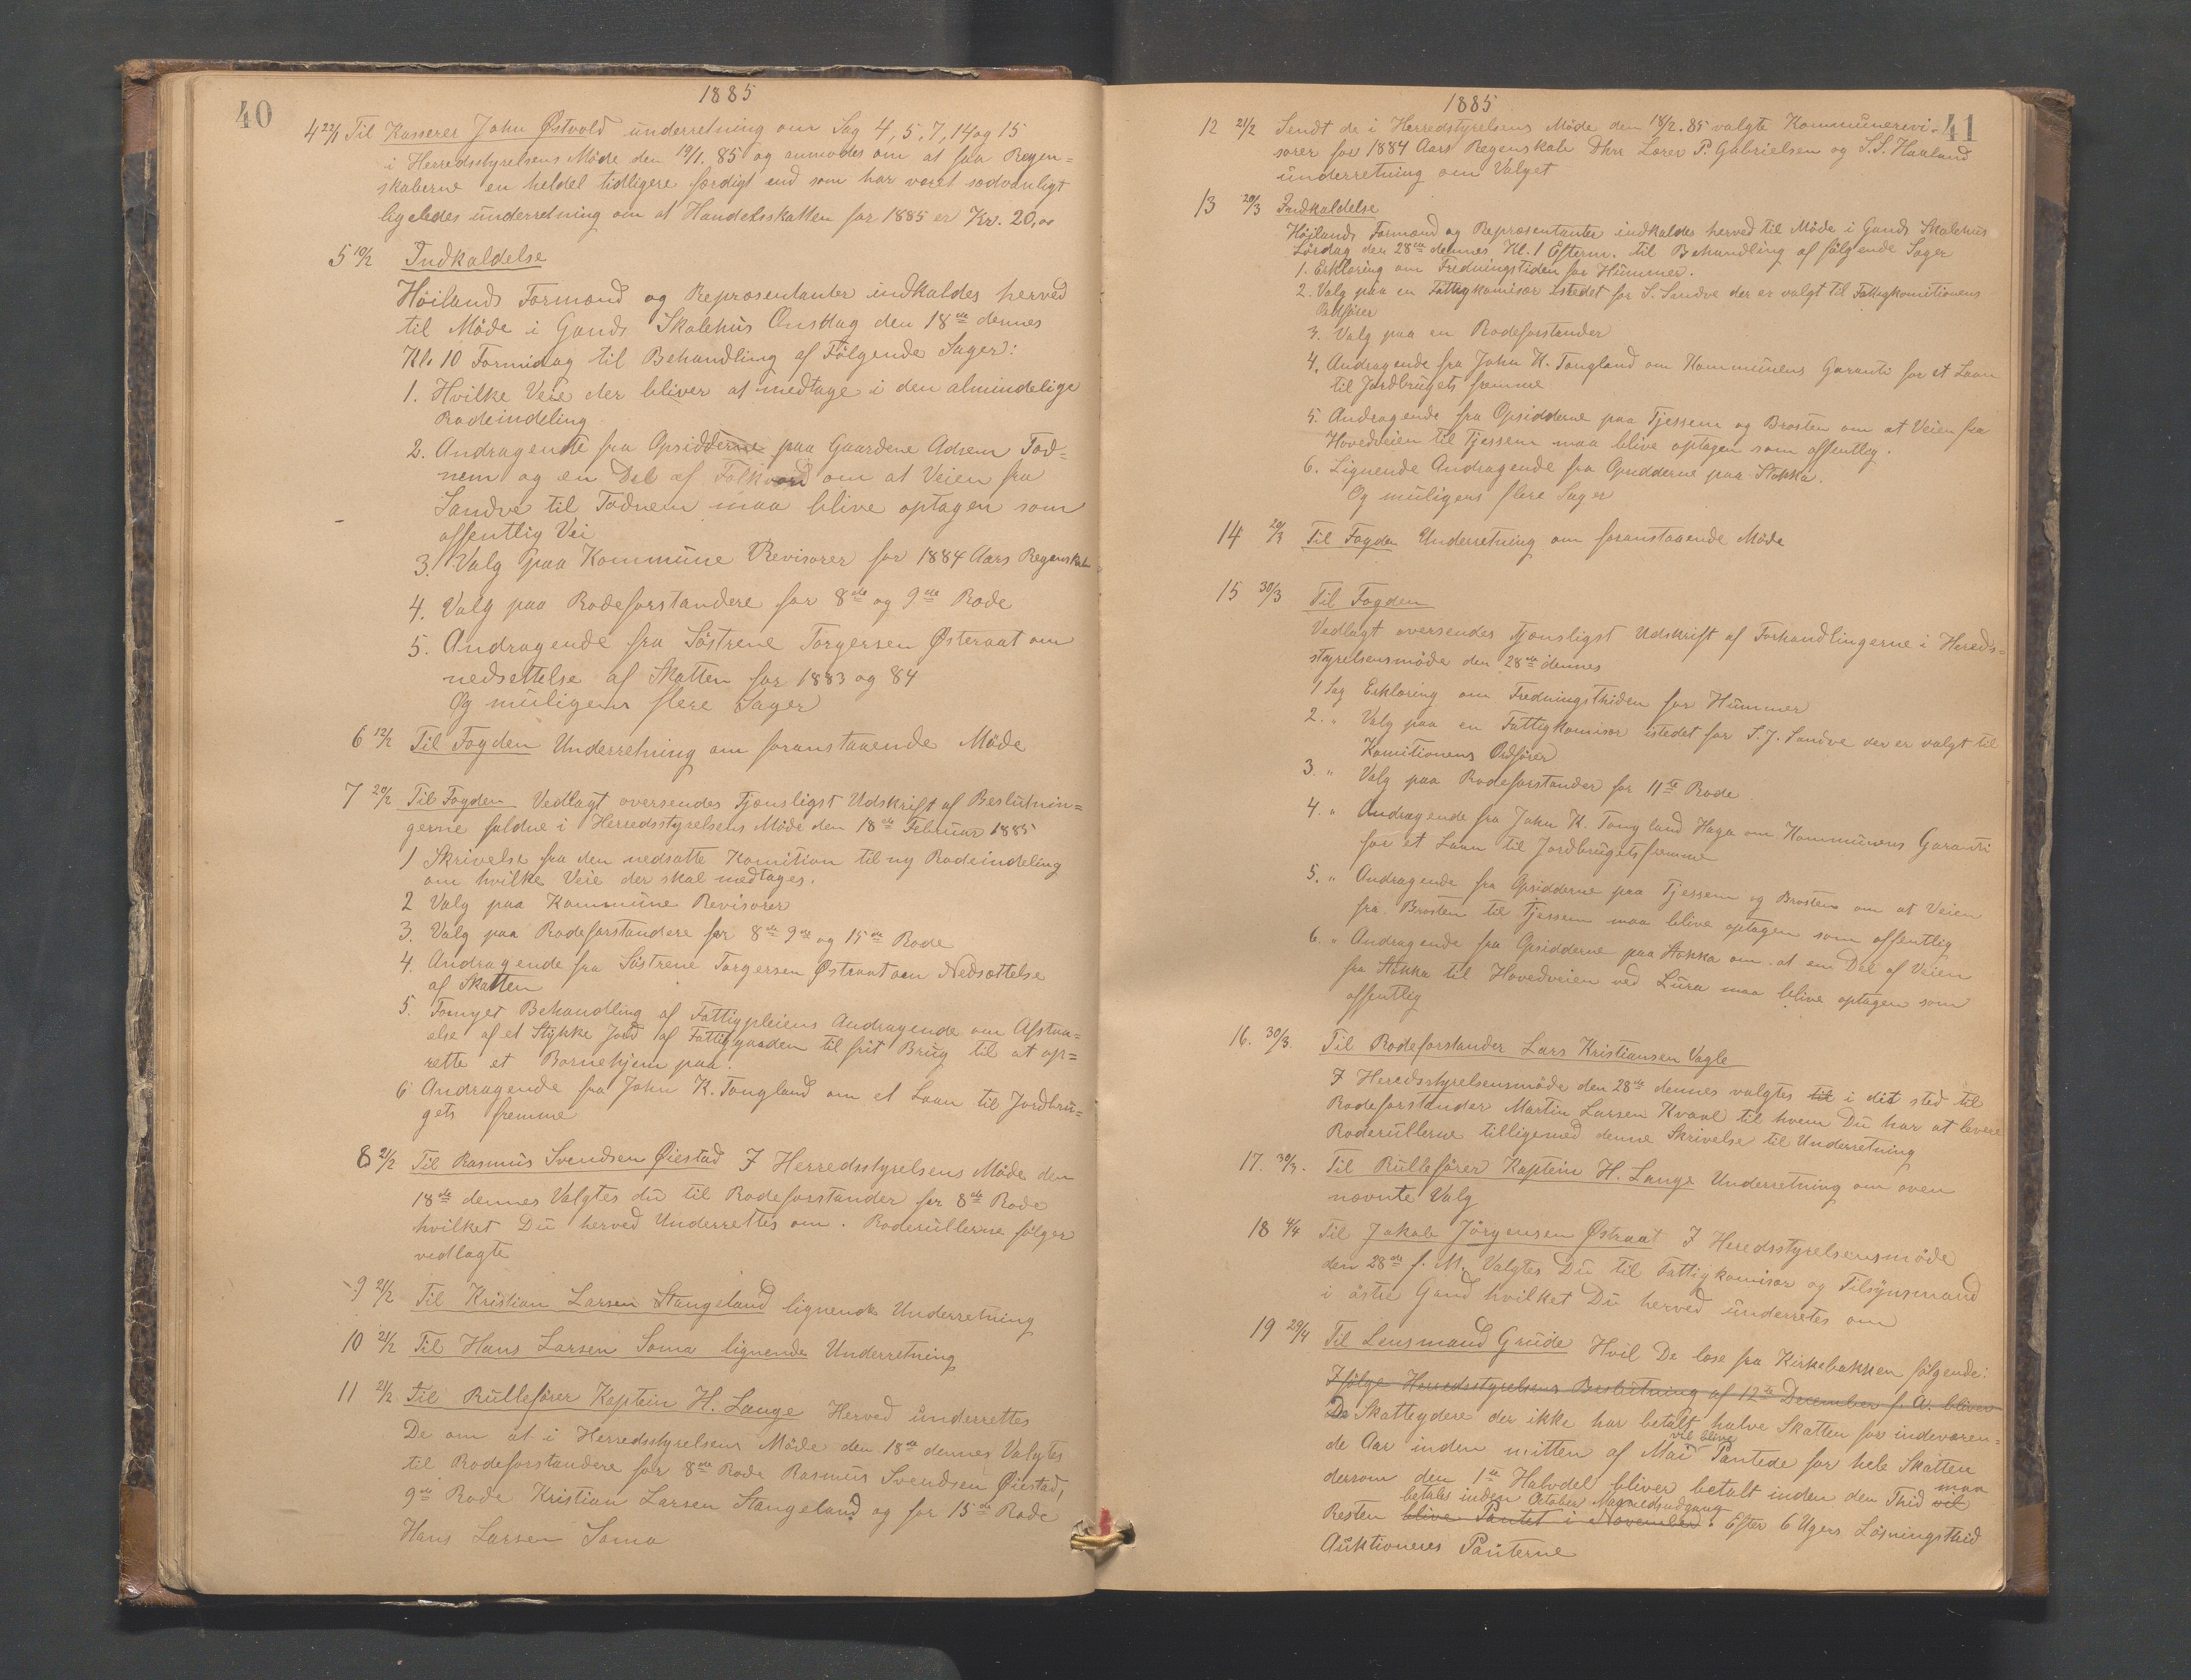 40
1885
4 22/1 Til Kasserer John Østvold underretning om Sag 4, 5, 7, 14 og 15
i Herredsstyrelsens Möde den 19/1. 85 og anmodes om at faa Regen=
skaberne en heldel tidligere færdigt end som har været sædvanligt
ligeledes underretning om at Handelsskatten for 1885 er Kr. 20,00
5 10/2 Indkaldelse
Höilands Formænd og Repræsentanter indkaldes herved
til Möde i Gands Skolehus Onsdag den 18de dennes
Kl. 10 Formidag til Behandling af Fölgende Sager:
1. Hvilke Veie der bliver at medtage i den almindelige
Rodeindeling
2. Andragende fra Opsidderne paa Gaardene Adsem Fod=
nem og en Del af Folkvord om at Veien fra
Sandve til Fodnem maa blive optagen som
offentlig Vei
3. Valg paa Kommune Revisorer for 1884 Aars Regnskab
4. Valg paa Rodeforstandere for 8de og 9de Rode
5. Andragende fra Söstrene Torgersen Østeraat om
nedsettelse af Skatten for 1883 og 84
Og muligens flere Sager
6 12/2 Til Fogden Underretning om foranstaaende Möde
7 20/2 Til Fogden Vedlagt oversendes Tjenstligst Udskrift af Beslutnin=
gerne faldne i Herredsstyrelsens Möde den 18de Februar 1885
1 Skrivelse fra den nedsatte Komition til ny Rodeindeling
om hvilke Veie der skal medtages.
2 Valg paa Kommune Revisorer
3. Valg paa Rodeforstandere for 8de 9de og 15de Rode
4. Andragende fra Söstrene Torgersen Østraat om Nedsættelse
af Skatten
5. Fornyet Behandling af Fattigpleiens Andragende om Afstaa=
else af et Stykke Jord af Fattiggaarden til frit Brug til at op=
rette et Bornehjem paa.
6 Andragende fra John K. Tongland om et Laan til Jordbru=
gets fremme
8 21/2 Til Rasmus Svendsen Øiestad I Herredsstyrelsens Möde den
18de dennes Valgtes du til Rodeforstander for 8de Rode
hvilket Du herved Underrettes om. Roderullerne fölger
vedlagte
9 21/2 Til Kristian Larsen Stangeland lignende Underretning
10 21/2 Til Hans Larsen Soma lignende Underretning
11 21/2 Til Rullefører Kaptein H. Lange Herved underrettes
De om at i Herredsstyrelsens Möde den 18de dennes Valgtes
til Rodeforstandere for 8de Rode Rasmus Svendsen Øiestad,
9de Rode Kristian Larsen Stangeland og for 15de Rode
Hans Larsen Soma
1885
41
12 21/2 Sendt de i Herredstyrelsens Möde den 18/2. 85 valgte Kommunerevi-
sorer for 1884 Aars Regenskab Dhrr Lærer P. Gabrielsen og S.S. Haaland
underretning om Valget
13 20/3 Indkaldelse
Höilands Formænd og Repræsentanter indkaldes herved til Möde i Gands Skolehus
Lördag den 28de dennes Kl. 1 Efterm. til Behandling af fölgende Sager
1. Erklæring om Fredningstiden for Hummer.
2. Valg paa en Fattigkomisær istedet for S. Sandve der er valgt til Fattigkomitionens
Ordfører
3. Valg paa en Rodeforstander
4. Andragende fra John K. Tongland om Kommunens Garanti for et Laan
til Jordbrugets fremme
5. Andragende fra Opsidderne paa Tjessem og Brosten om at Veien fra
Hovedveien til Tjessem maa blive optagen som offentlig.
6. Lignende Andragende fra Opsidderne paa Stokka.
Og muligens flere Sager
14 20/3 Til Fogden Underretning om foranstaaende Möde
15 30/3 Til Fogden
Vedlagt oversendes tjensligst Udskrift af Forhandlingerne i Hereds=
styrelsensmöde den 28de dennes
1 Sag Erklæring om Fredningsthiden for Hummer
2. " Valg paa en Fattigkomisær istedet for S.J. Sandve der er valgt til
Komitionens Ordfører
3 " Valg paa Rodeforstander for 11te Rode
4. " Andragende fra John K. Tongland Haga om Kommunens Garanti
for et Laan til Jordbrugets fremme
5. " Andragende fra Opsidderne paa Tjessem og Brosten om at Veien
fra Brosten til Tjessem maa blive optagen som offentlig
6. " Andragende fra Opsidderne paa Stokka om at en Del af Veien
fra Stokka til Hovedveien ved Lura maa blive optagen som
offentlig
16. 30/3 Til Rodeforstander Lars Kristiansen Vagle
I Heredsstyrelsensmöde den 28de dennes valgtes til i dit sted til
Rodeforstander Martin Larsen Kvaal til hvem Du har at levere
Roderullerne tilligemed denne Skrivelse til Underretning
17. 30/3. Til Rullefører Kaptein H. Lange Underretning om oven
nævnte Valg
18 4/4 Til Jakob Jörgensen Østraat I Heredsstyrelsensmöde
den 28de f. M. Valgtes Du til Fattigkomisær og Tilsynsmand
i östre Gand hvilket Du herved underretes om
19 29/4 Til Lensmand Grude Hvil De læse fra Kirkebakken fölgende:
Ifölge Herredsstyrelsens Beslutning af 12te December f. A. bliver
De Skatteydere der ikke har betalt halve Skatten for indeværen=
vil blive
de Aar inden mitten af Mai Pantede for hele Skatten
dersom den 1te Halvdel bliver betalt inden den Thid vil maa
betales inden October Maanedsudgang
Resten blive Pantet i November. Efter 6 Ugers Lösningsthid
Auktioneres Panterne